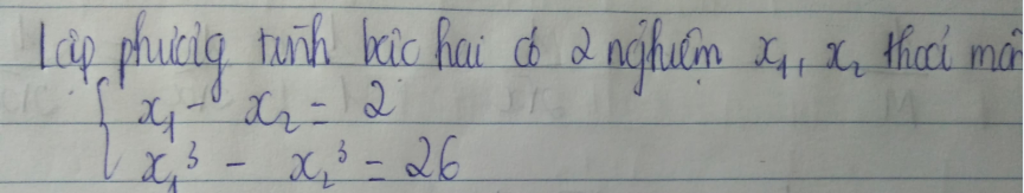 Lập phương trình bậc hai có 2 nghiệm x₁, x₂ thoả mãn
x₁ - x₂ = 2
x₁³ - x₂³ = 26